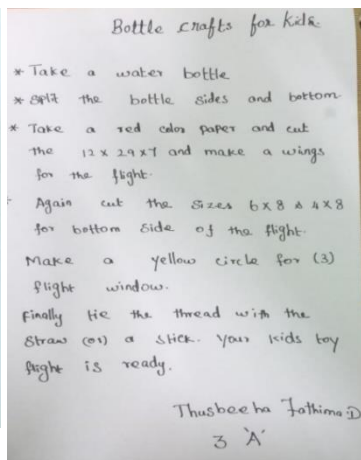 Bottle crafts for kids
* Take a water bottle
* Split the bottle sides and bottom.
* Take a red color paper and cut
the 12 x 29 x 7 and make a wings
for the flight.
- Again cut the sizes 6 x 8 & 4 x 8
for bottom side of the flight.
Make a yellow circle for (3)
flight window.
Finally tie the thread with the
straw (or) a stick. your kids toy
flight is ready.
Thusbeeha Fathima.D
3 'A'